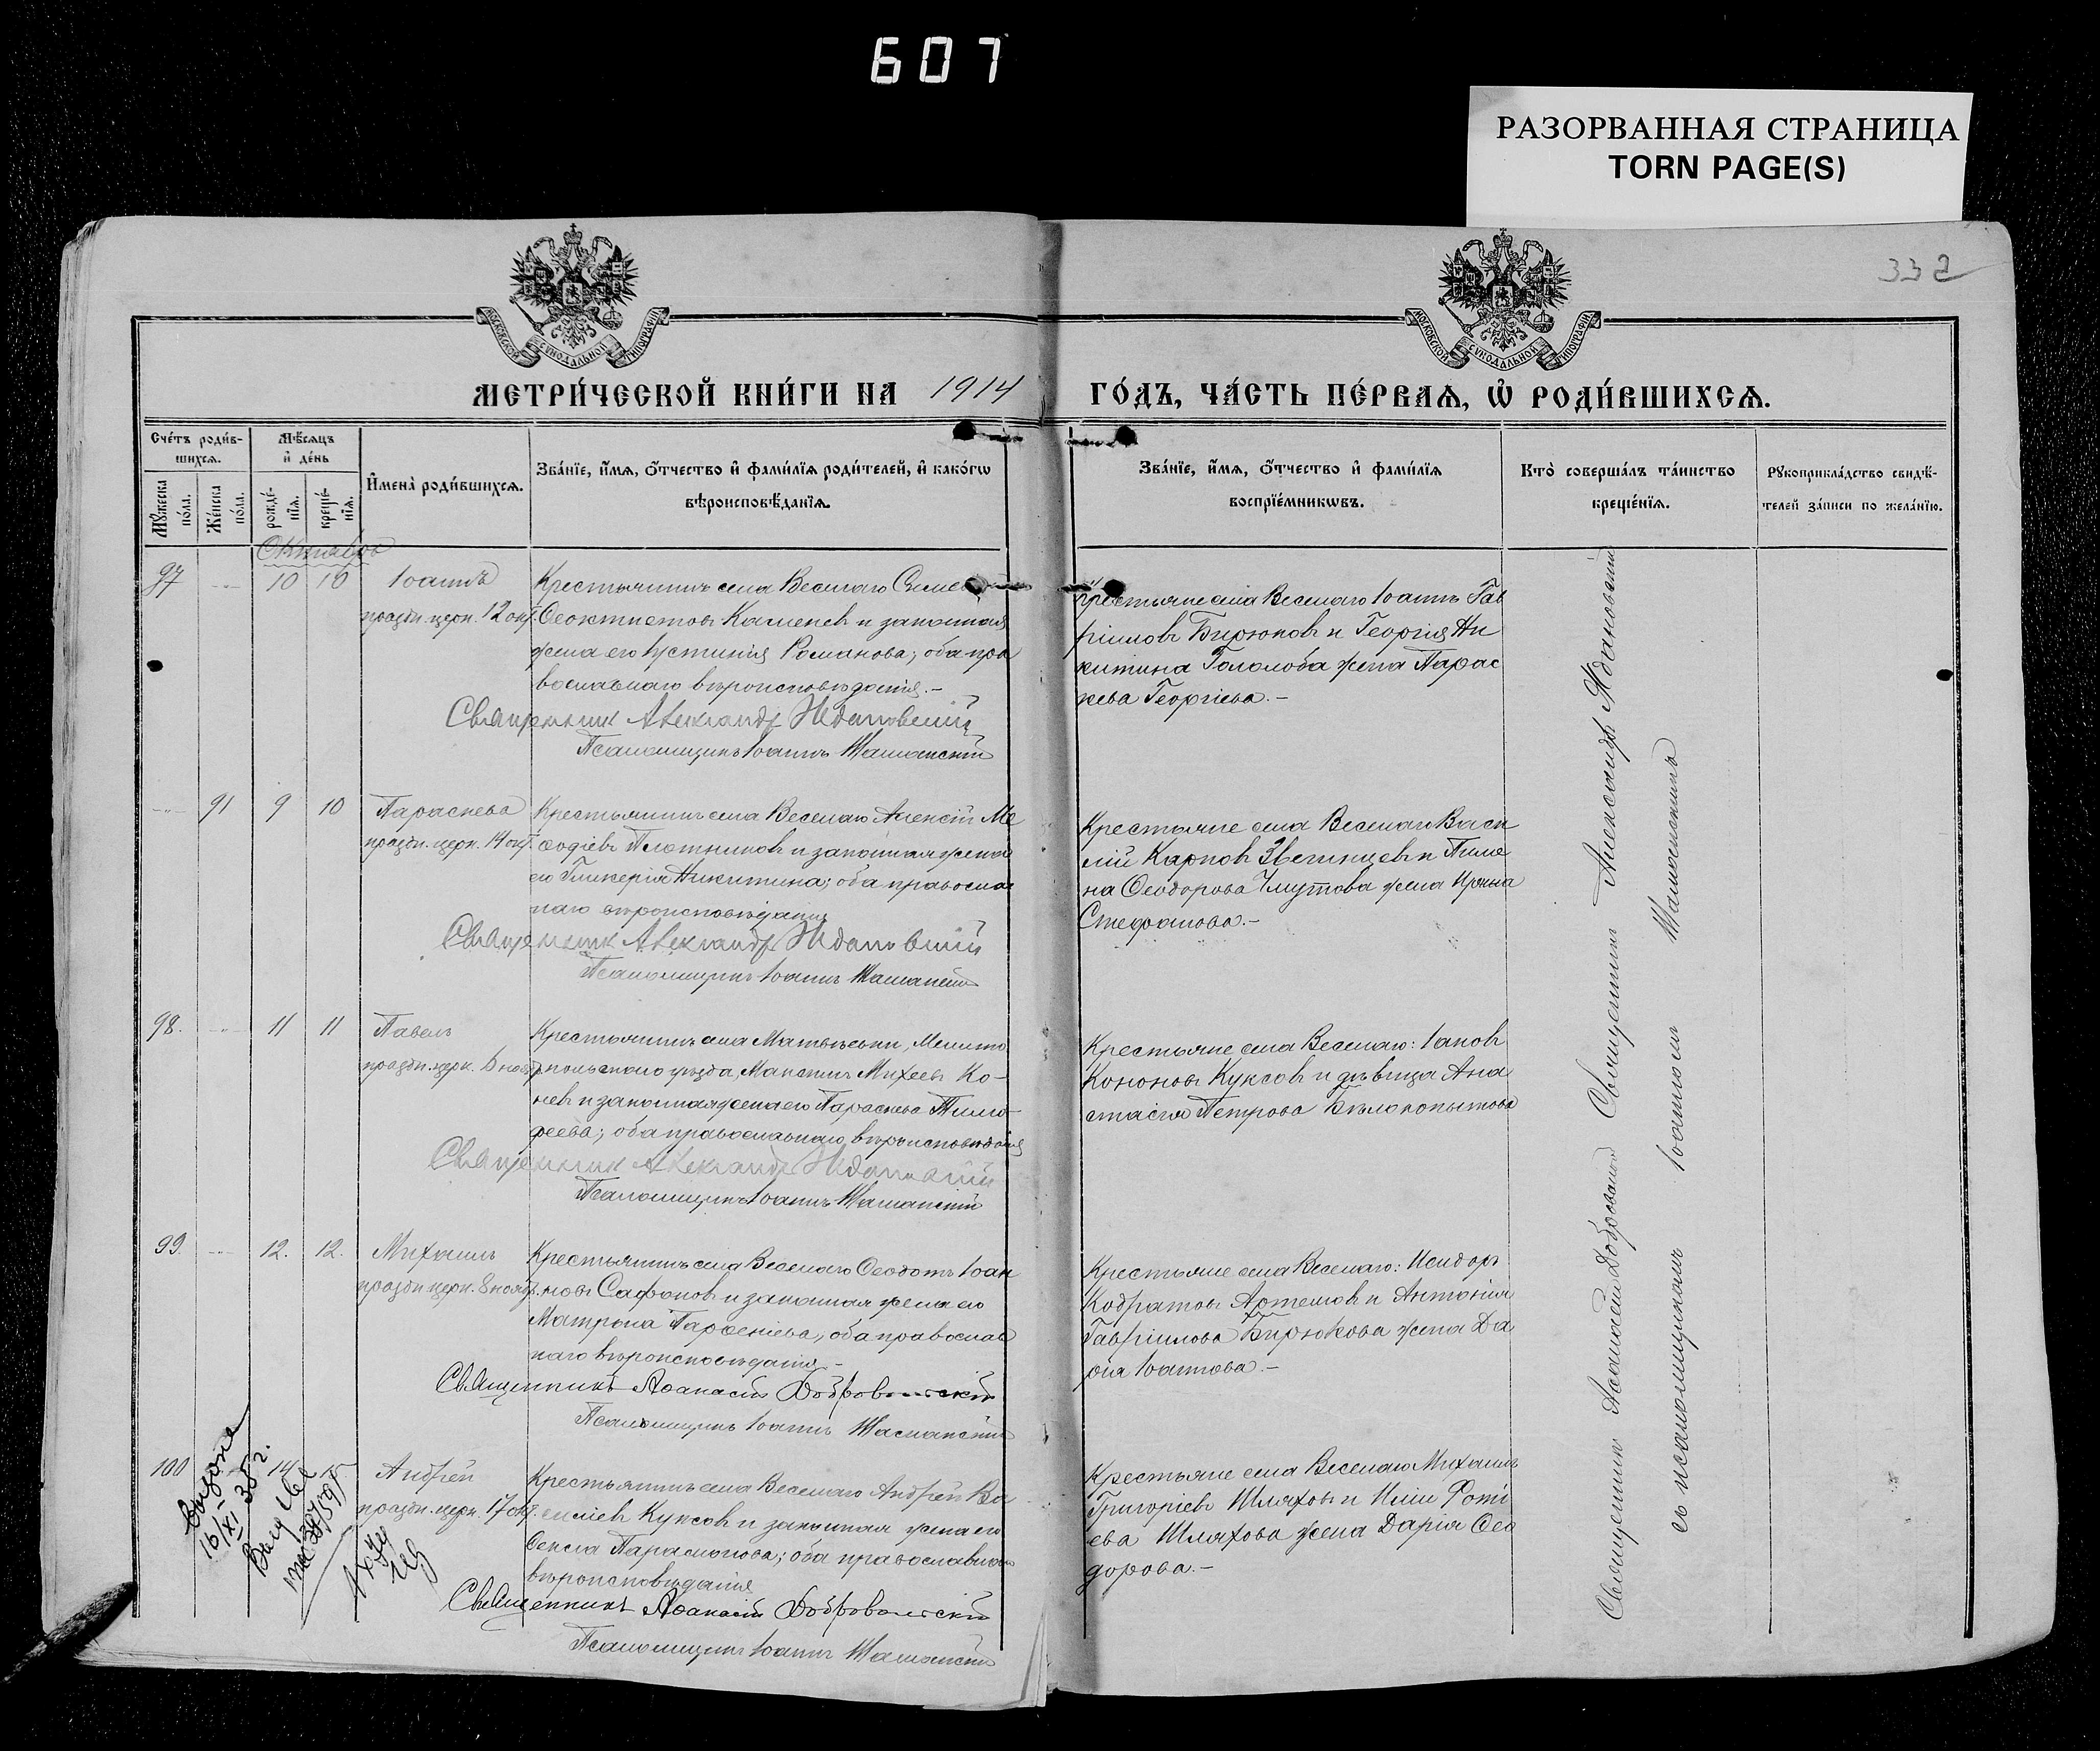 607
РАЗОРВАННАЯ СТРАНИЦА
TORN PAGE(S)
332
МОСКОВСКОЙ СѴНОДАЛЬНОЙ ТИПОГРАФІИ
МОСКОВСКОЙ СѴНОДАЛЬНОЙ ТИПОГРАФІИ
МЕТРИ́ЧЕСКОЙ КНИ́ГИ НА 1914 ГО́ДЪ, ЧА́СТЬ ПЕ́РВАѦ, Ѡ҆ РОДИ́ВШИХСѦ.
Сче́тъ роди́в-
шихсѧ.
Мꙋ́жеска по́ла.
Же́нска по́ла.
Мѣ́сѧцъ
и҆ де́нь
рожде́-нїѧ.
креще́-нїѧ.
И҆мена̀ роди́вшихсѧ.
Зва́нїе, и҆́мѧ, ѻ҆́тчество и҆ фами́лїѧ роди́телей, и҆ како́гѡ
вѣроисповѣ́данїѧ.
Зва́нїе, и҆́мѧ, ѻ҆́тчество и҆ фами́лїѧ
воспрїе́мникѡвъ.
Кто̀ соверша́лъ та́инство
креще́нїѧ.
Рꙋкоприкла́дство свидѣ́-
телей за́писи по жела́нїю.
Октябрь
97 10 10 Іоаннъ
праздн. церк. 12 окт.
Крестьянинъ села Веселаго
Ѳеоктистовъ Каменевъ и законная
жена его Іустинія Романова; оба пра
вославнаго вѣроисповѣданія.-
Священник Александр Ждановский
Псаломщикъ Іоаннъ Шаманскій
Крестьяне села Веселаго Іоаннъ Гав
ріиловъ Бирюковъ и Георгія Ни
китина Гололоба жена Парас
кева Георгіева.-
91 9 10 Параскева
праздн. церк. 14 окт.
Крестьянинъ села Веселаго Алексій Ме
ѳодіевъ Плотниковъ и законная жена
его Гликерія Никитина; оба православ
наго вѣроисповѣданія
Священник Александр Ждановский
Псаломщикъ Іоаннъ Шаманскій
Крестьяне села Веселаго Васи
лій Карповъ Звегинцевъ и Пиме
на Ѳеодорова жена Ирина
Стефанова.-
98. 11 11 Павелъ
праздн. церк. 6 нояб.
Крестьянинъ села Матвѣевки, Мелито
польскаго уѣзда, Максимъ Михеевъ Ко-
невъ и законная жена его Параскева Тимо-
феева; оба православнаго вѣроисповѣданія
Священник Александр Ждановский
Псаломщикъ Іоаннъ Шаманскій
Крестьяне села Веселаго: Іаковъ
Кононовъ Куксовъ и дѣвица Ана
стасія Петрова Бѣлокопытова
99. 12. 12. Михаилъ
праздн. церк. 8 нояб.
Крестьянинъ села Веселаго Ѳеодотъ Іоан
новъ Сафоновъ и законная жена его
Матрона Парѳеніева, оба православ
наго вѣроисповѣданія.-
Священникъ Аѳанасій Добровольскій
Псаломщикъ Іоаннъ Шаманскій
Крестьяне села Веселаго: Исидоръ
Кодратовъ Артемовъ и Антонія
Гавріилова Бирюкова жена Да
рія Іоаннова.-
100 14 15 Андрей
праздн. церк. 17 окт.
Крестьянинъ села Веселаго Андрей Ва
силіевъ Куксовъ и законная жена его
Парамонова; оба православнаго
вѣроисповѣданія
Священникъ Аѳанасій Добровольскій
Псаломщикъ Іоаннъ Шаманскій
Крестьяне села Веселаго Михаилъ
Григоріевъ Шляховъ и Иліи Фоті
ева Шляхова жена Дарія Ѳео
дорова.-
Выдана
16/XI-38 г.
Священникъ Аѳанасій Добровольскій Священникъ Александръ Ждановскій
съ псаломщикомъ Іоанномъ Шаманскимъ